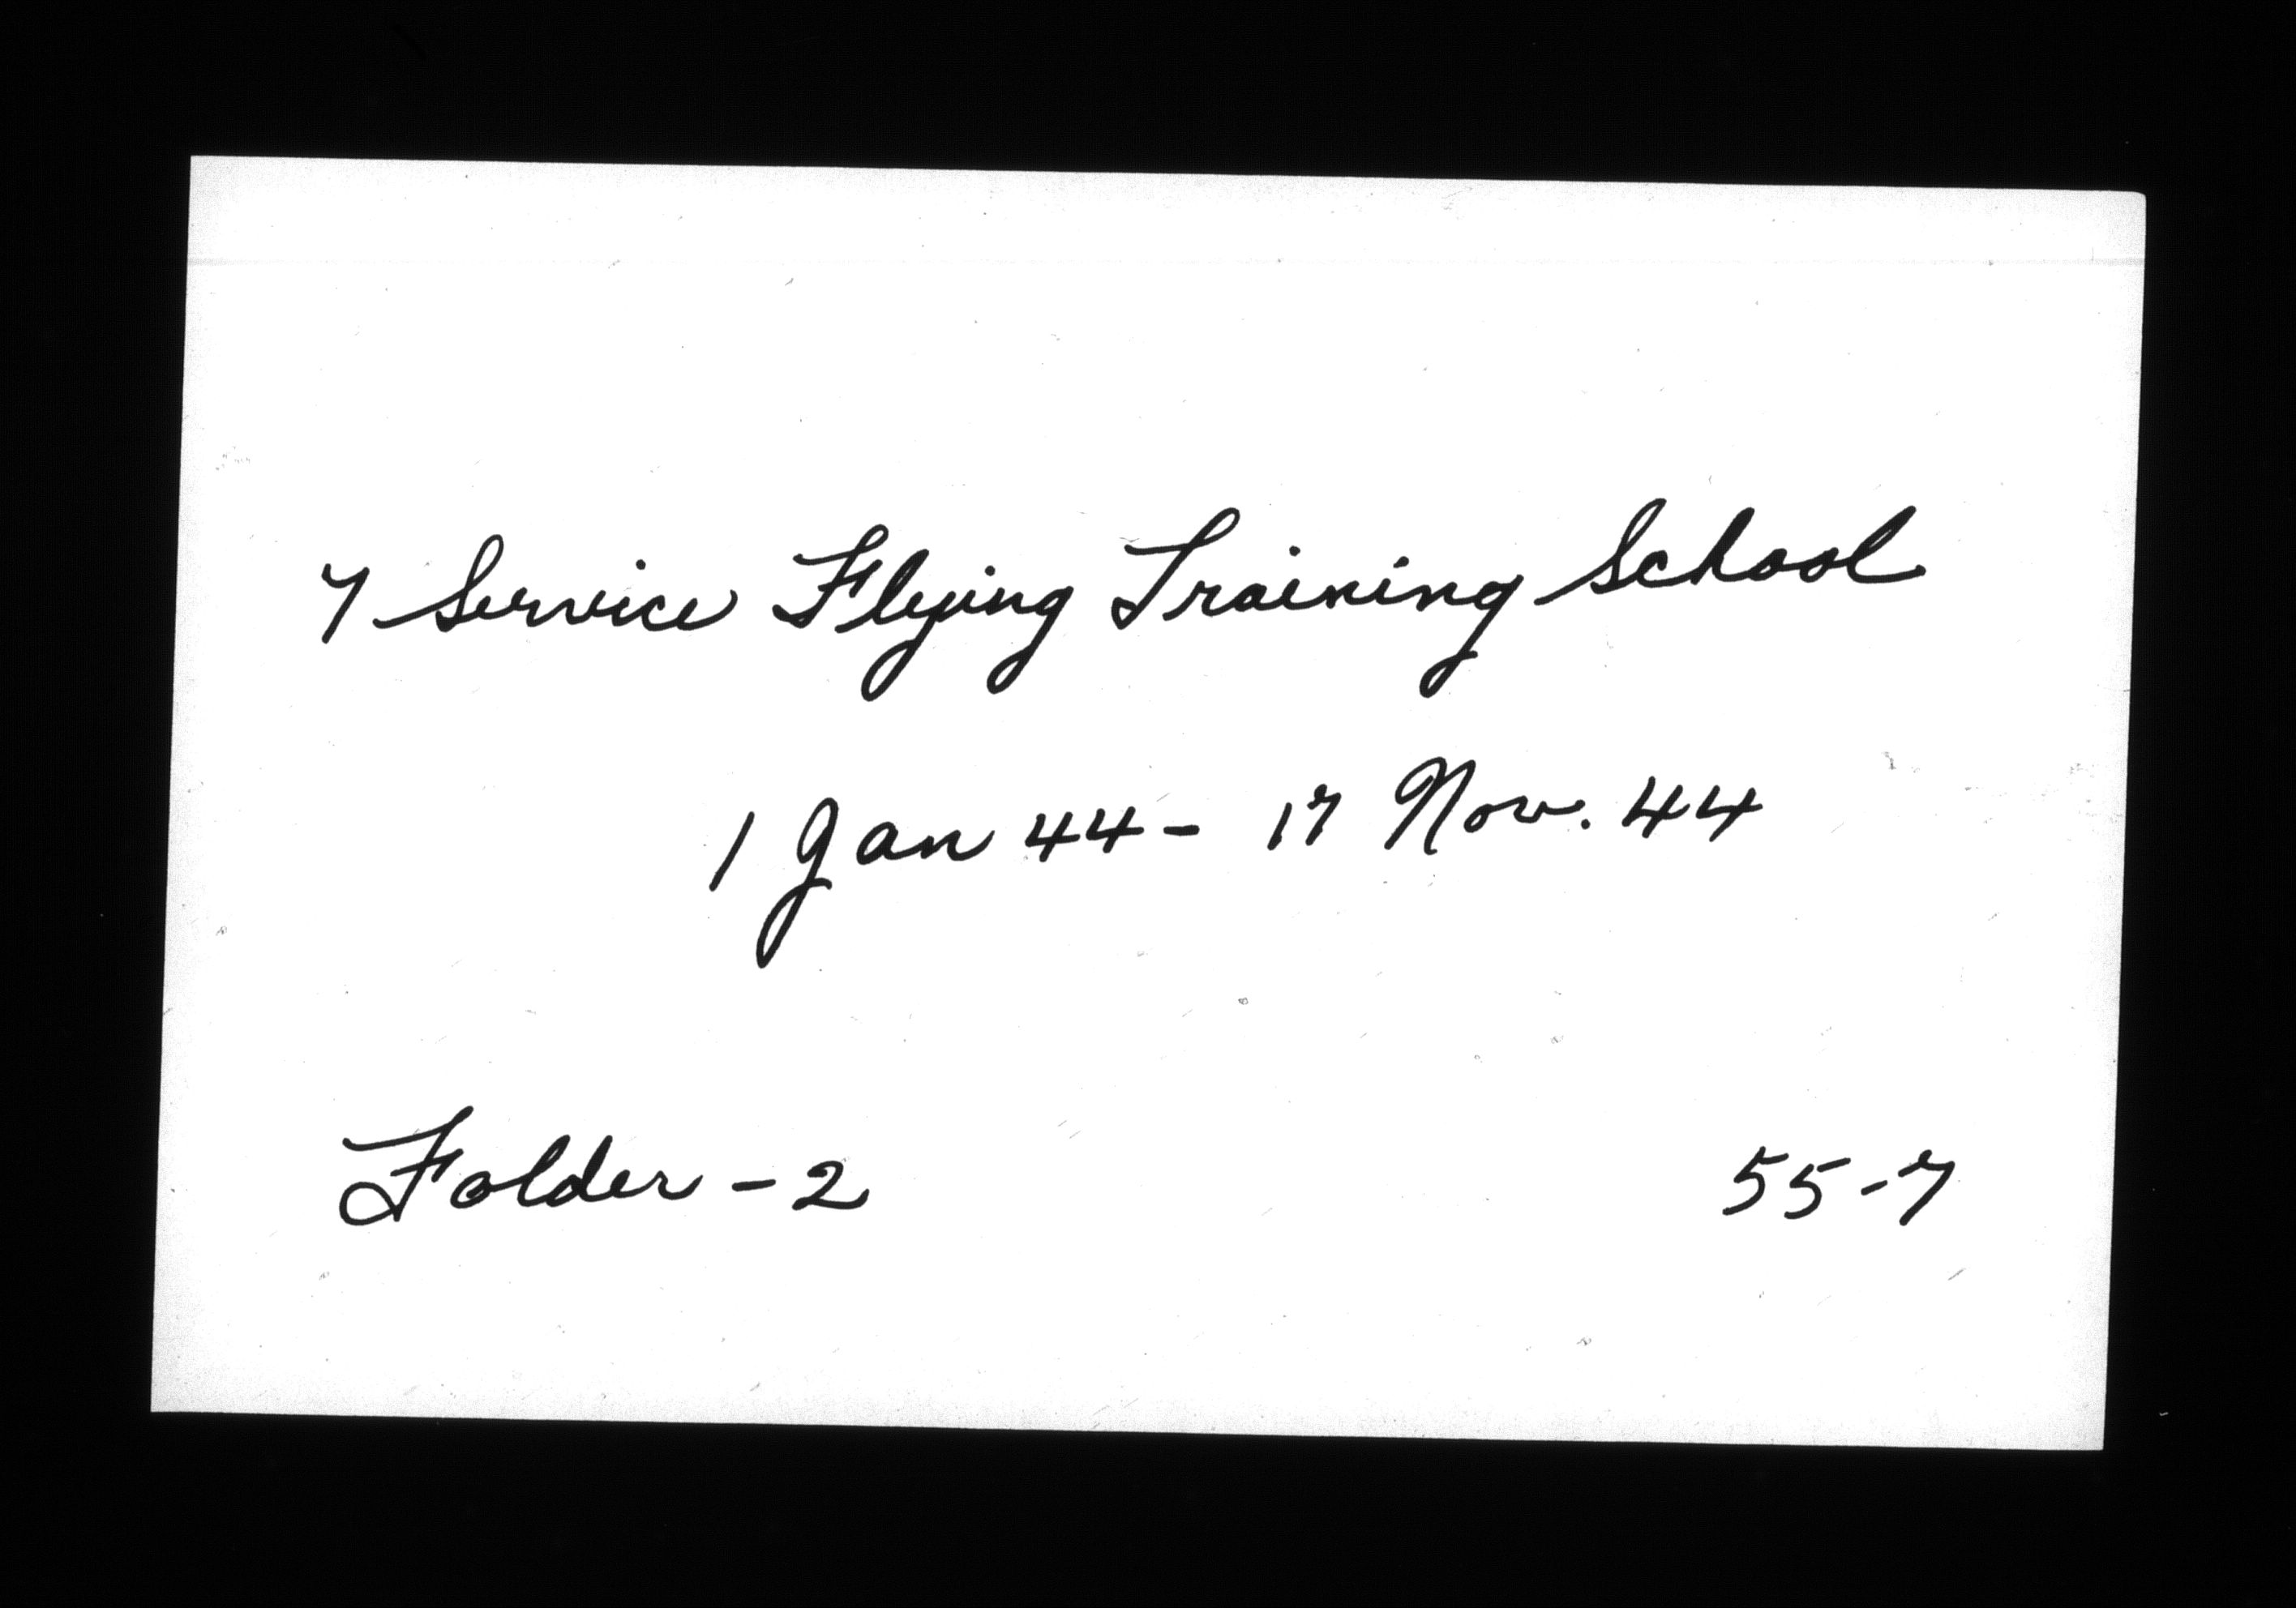 7 Service Flying Training School
1 Jan 44 - 17 Nov. 44
Folder - 2 55-7